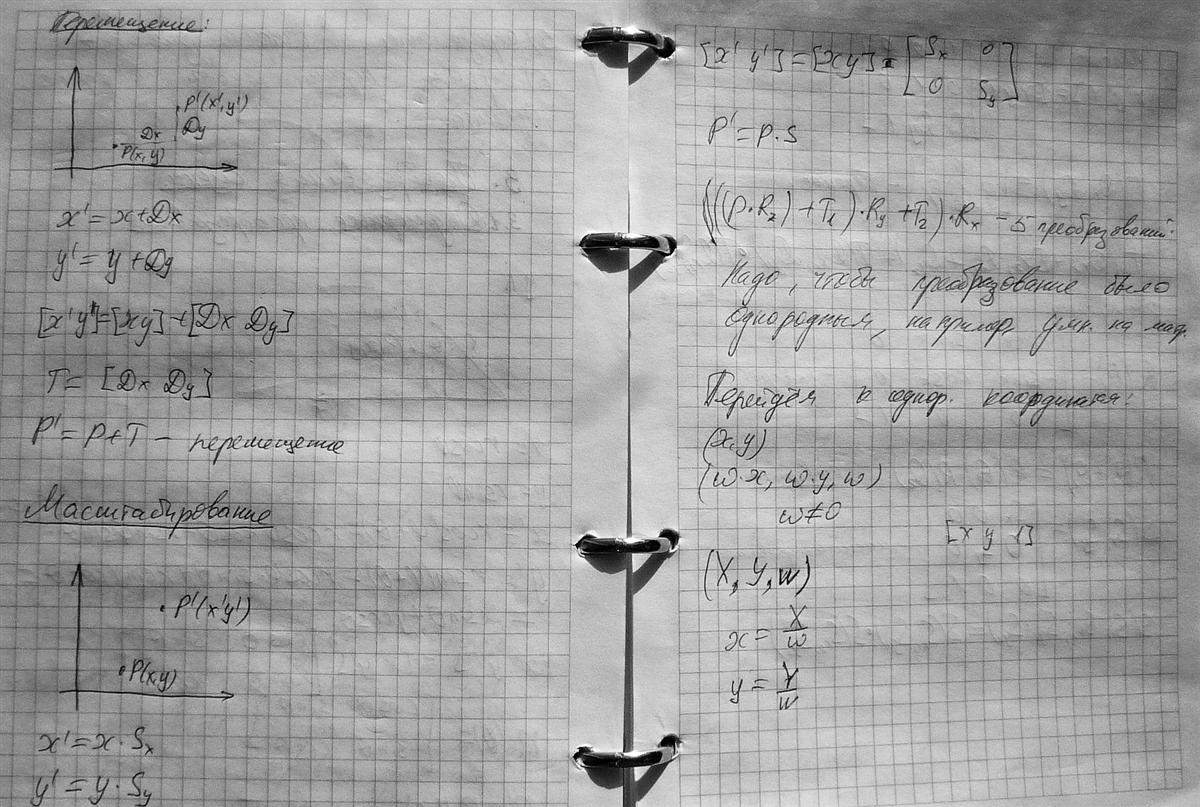 Перемещение:
P'(x', y')
Dx
Dy
P(x, y)
x' = x + Dx
y' = y + Dy
[x' y'] = [x y] + [Dx Dy]
T = [Dx Dy]
P' = P + T – перемещение
Масштабирование
P'(x' y')
P(x, y)
x' = x · Sx
y' = y · Sy
[x' y'] = [x y] · [Sx 0
0 Sy]
P' = P · S
((((P · Rz) + T1) · Ry + T2) · Rx – 5 преобразований.
Надо, чтобы преобразование было
однородным, например умн. на мат.
Перейдём к однор. координатам:
(x, y)
(w·x, w·y, w)
w ≠ 0
[x y 1]
(X, Y, w)
x = X/w
y = Y/w